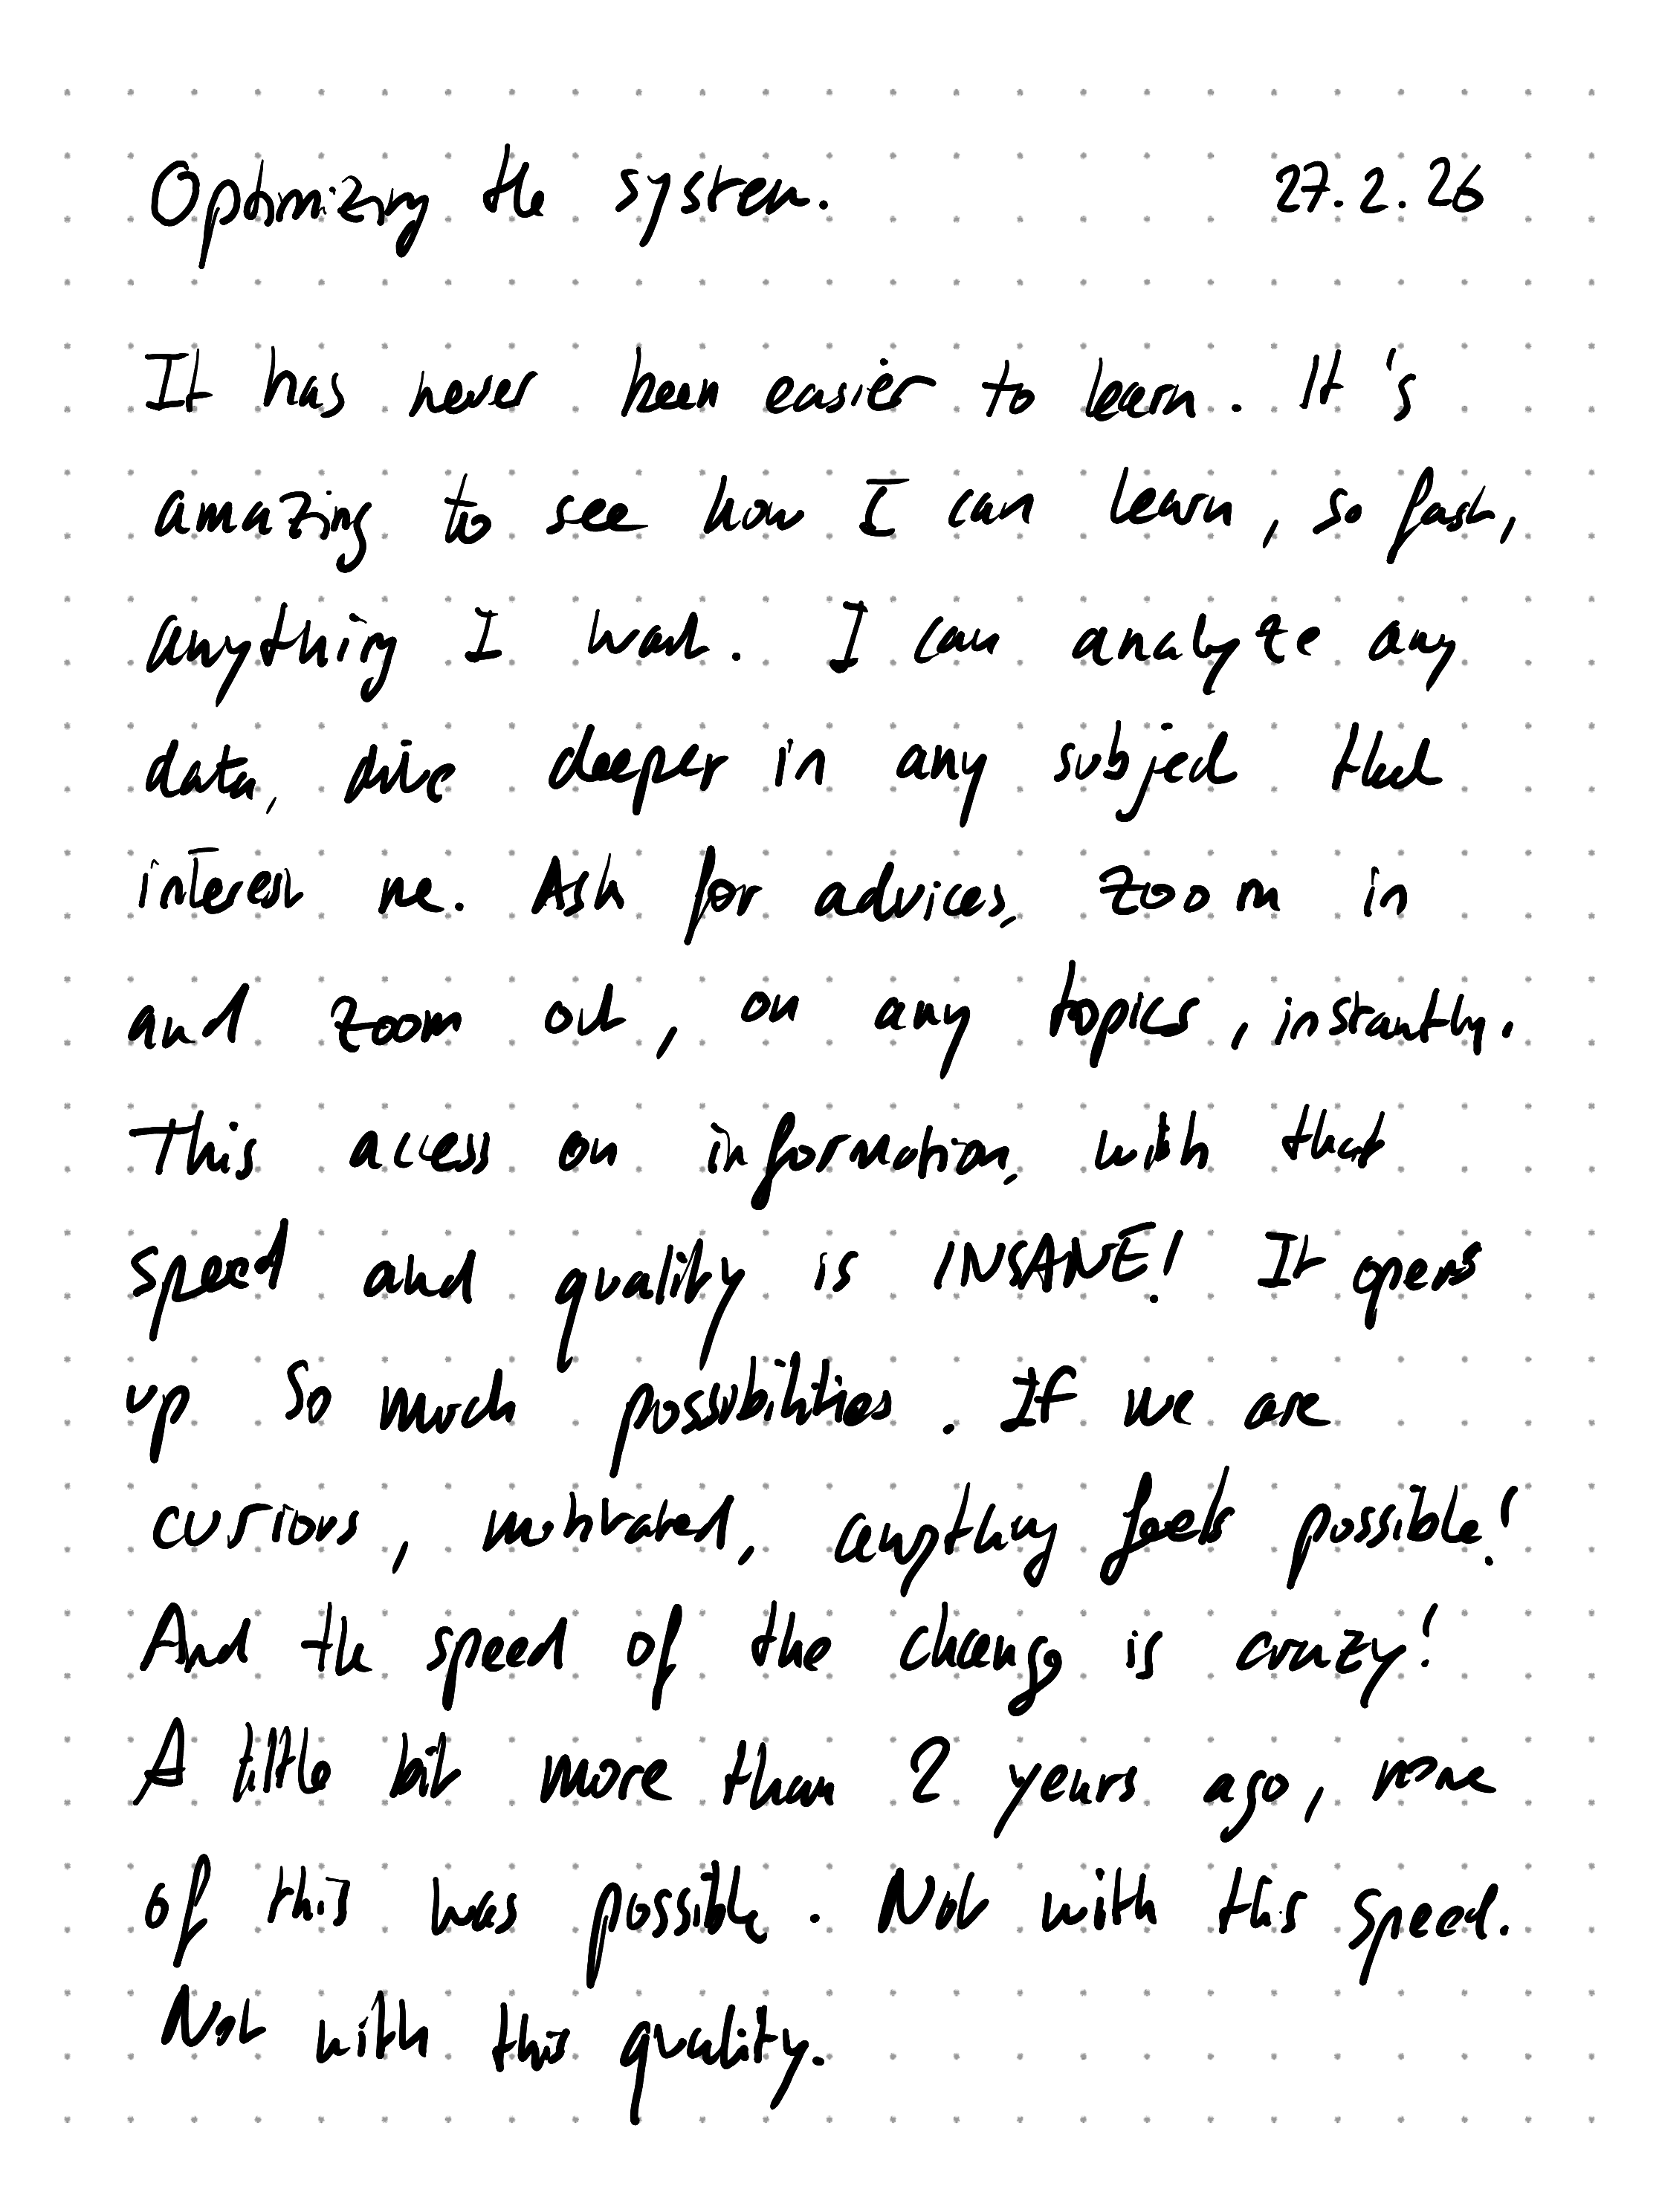 Optimizing the system. 27.2.26
It has never been easier to learn. It's
amazing to see how I can learn, so fast,
anything I want. I can analyze any
data, dive deeper in any subject that
interest me. Ask for advices, zoom in
and zoom out, on any topics, instantly.
This access on information, with that
speed and quality is INSANE! It opens
up so much possibilities. If we are
curious, motivated, anything feels possible!
And the speed of the change is crazy!
A little bit more than 2 years ago, none
of this was possible. Not with this speed.
Not with this quality.